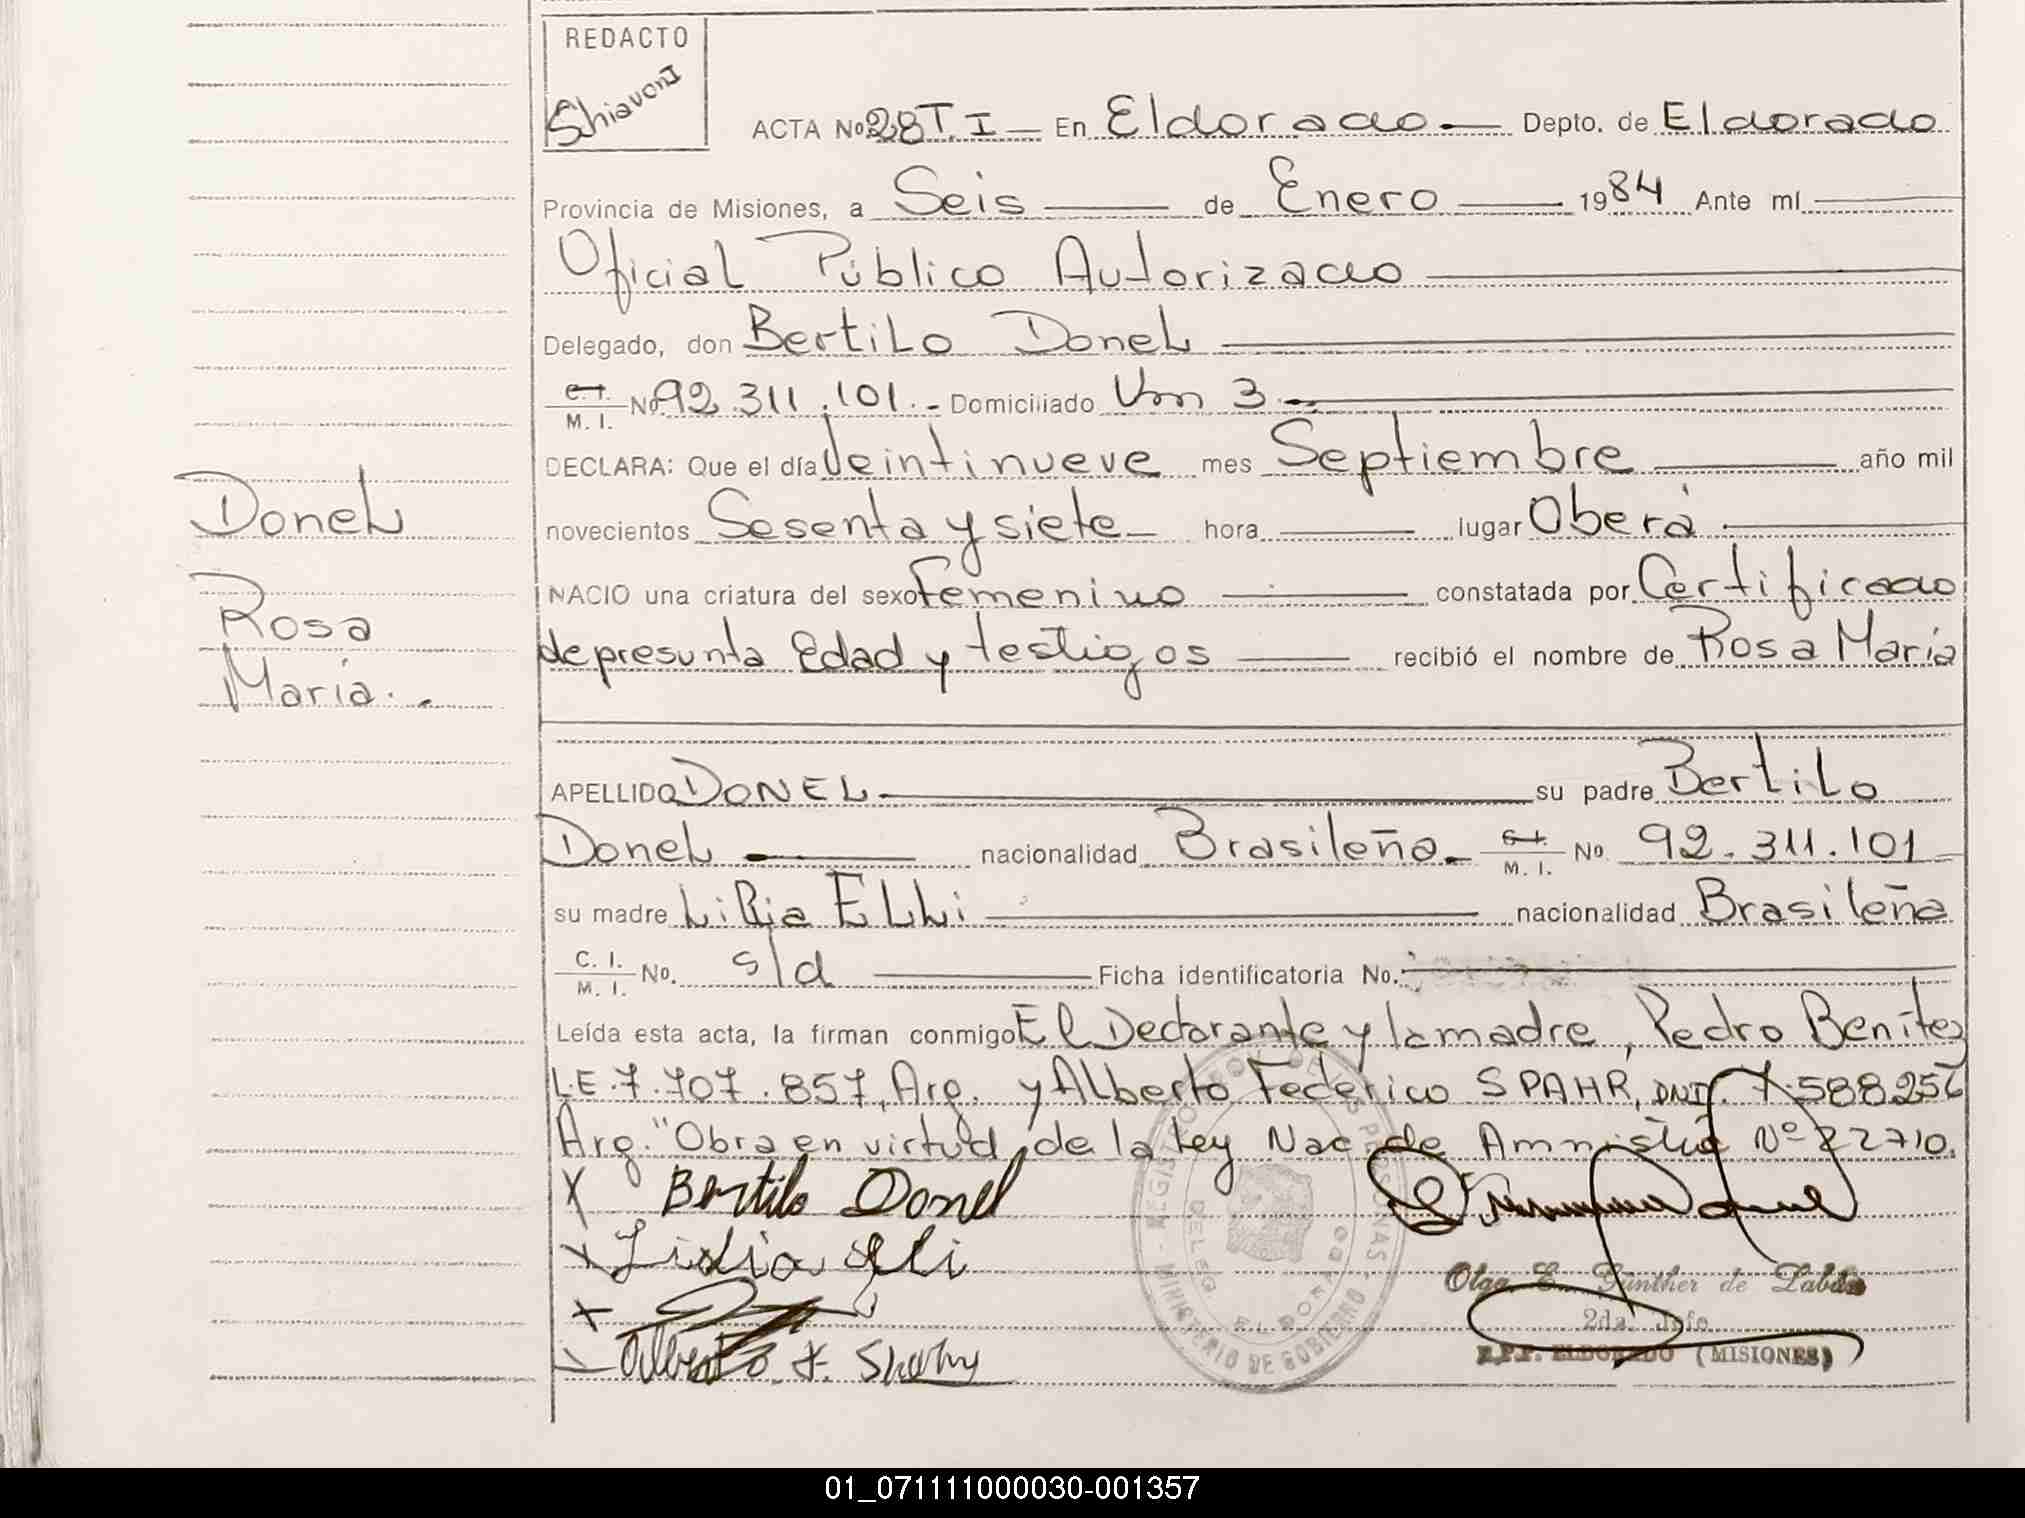 REDACTO
Schiavoni
ACTA No 28 T. I En Eldorado Depto. de Eldorado
Provincia de Misiones, a Seis de Enero 1984 Ante mí
Oficial Público Autorizado
Delegado, don Bertilo Donel
C. I. M. I. No 92.311.101. Domiciliado Km 3
DECLARA: Que el día Veintinueve mes Septiembre año mil
novecientos Sesenta y siete hora lugar Oberá
NACIO una criatura del sexo Femenino constatada por Certificado
de presunta Edad y testigos recibió el nombre de Rosa María
Donel
Rosa
María.
APELLIDO DONEL su padre Bertilo
Donel nacionalidad Brasileña C. I. M. I. No 92.311.101
su madre Lidia ELLi nacionalidad Brasileña
C. I. M. I. No. s/d Ficha identificatoria No.
Leída esta acta, la firman conmigo El Declarante y la madre, Pedro Benítez
L.E. 7.707.857, Arg. y Alberto Federico SPAHR, DNI. 7.588.256
Arg. "Obra en virtud de la Ley Nac. de Amnistia Nº 22710.
X Bertilo Donel
X Lidia Eli
X
Alberto F. Spahr
REGISTRO DE LAS PERSONAS - MINISTERIO DE GOBIERNO
DELEG ELDORADO
Olga E. Günther de
2da. Jefe
R.P.P. ELDORADO (MISIONES)
01_071111000030-001357